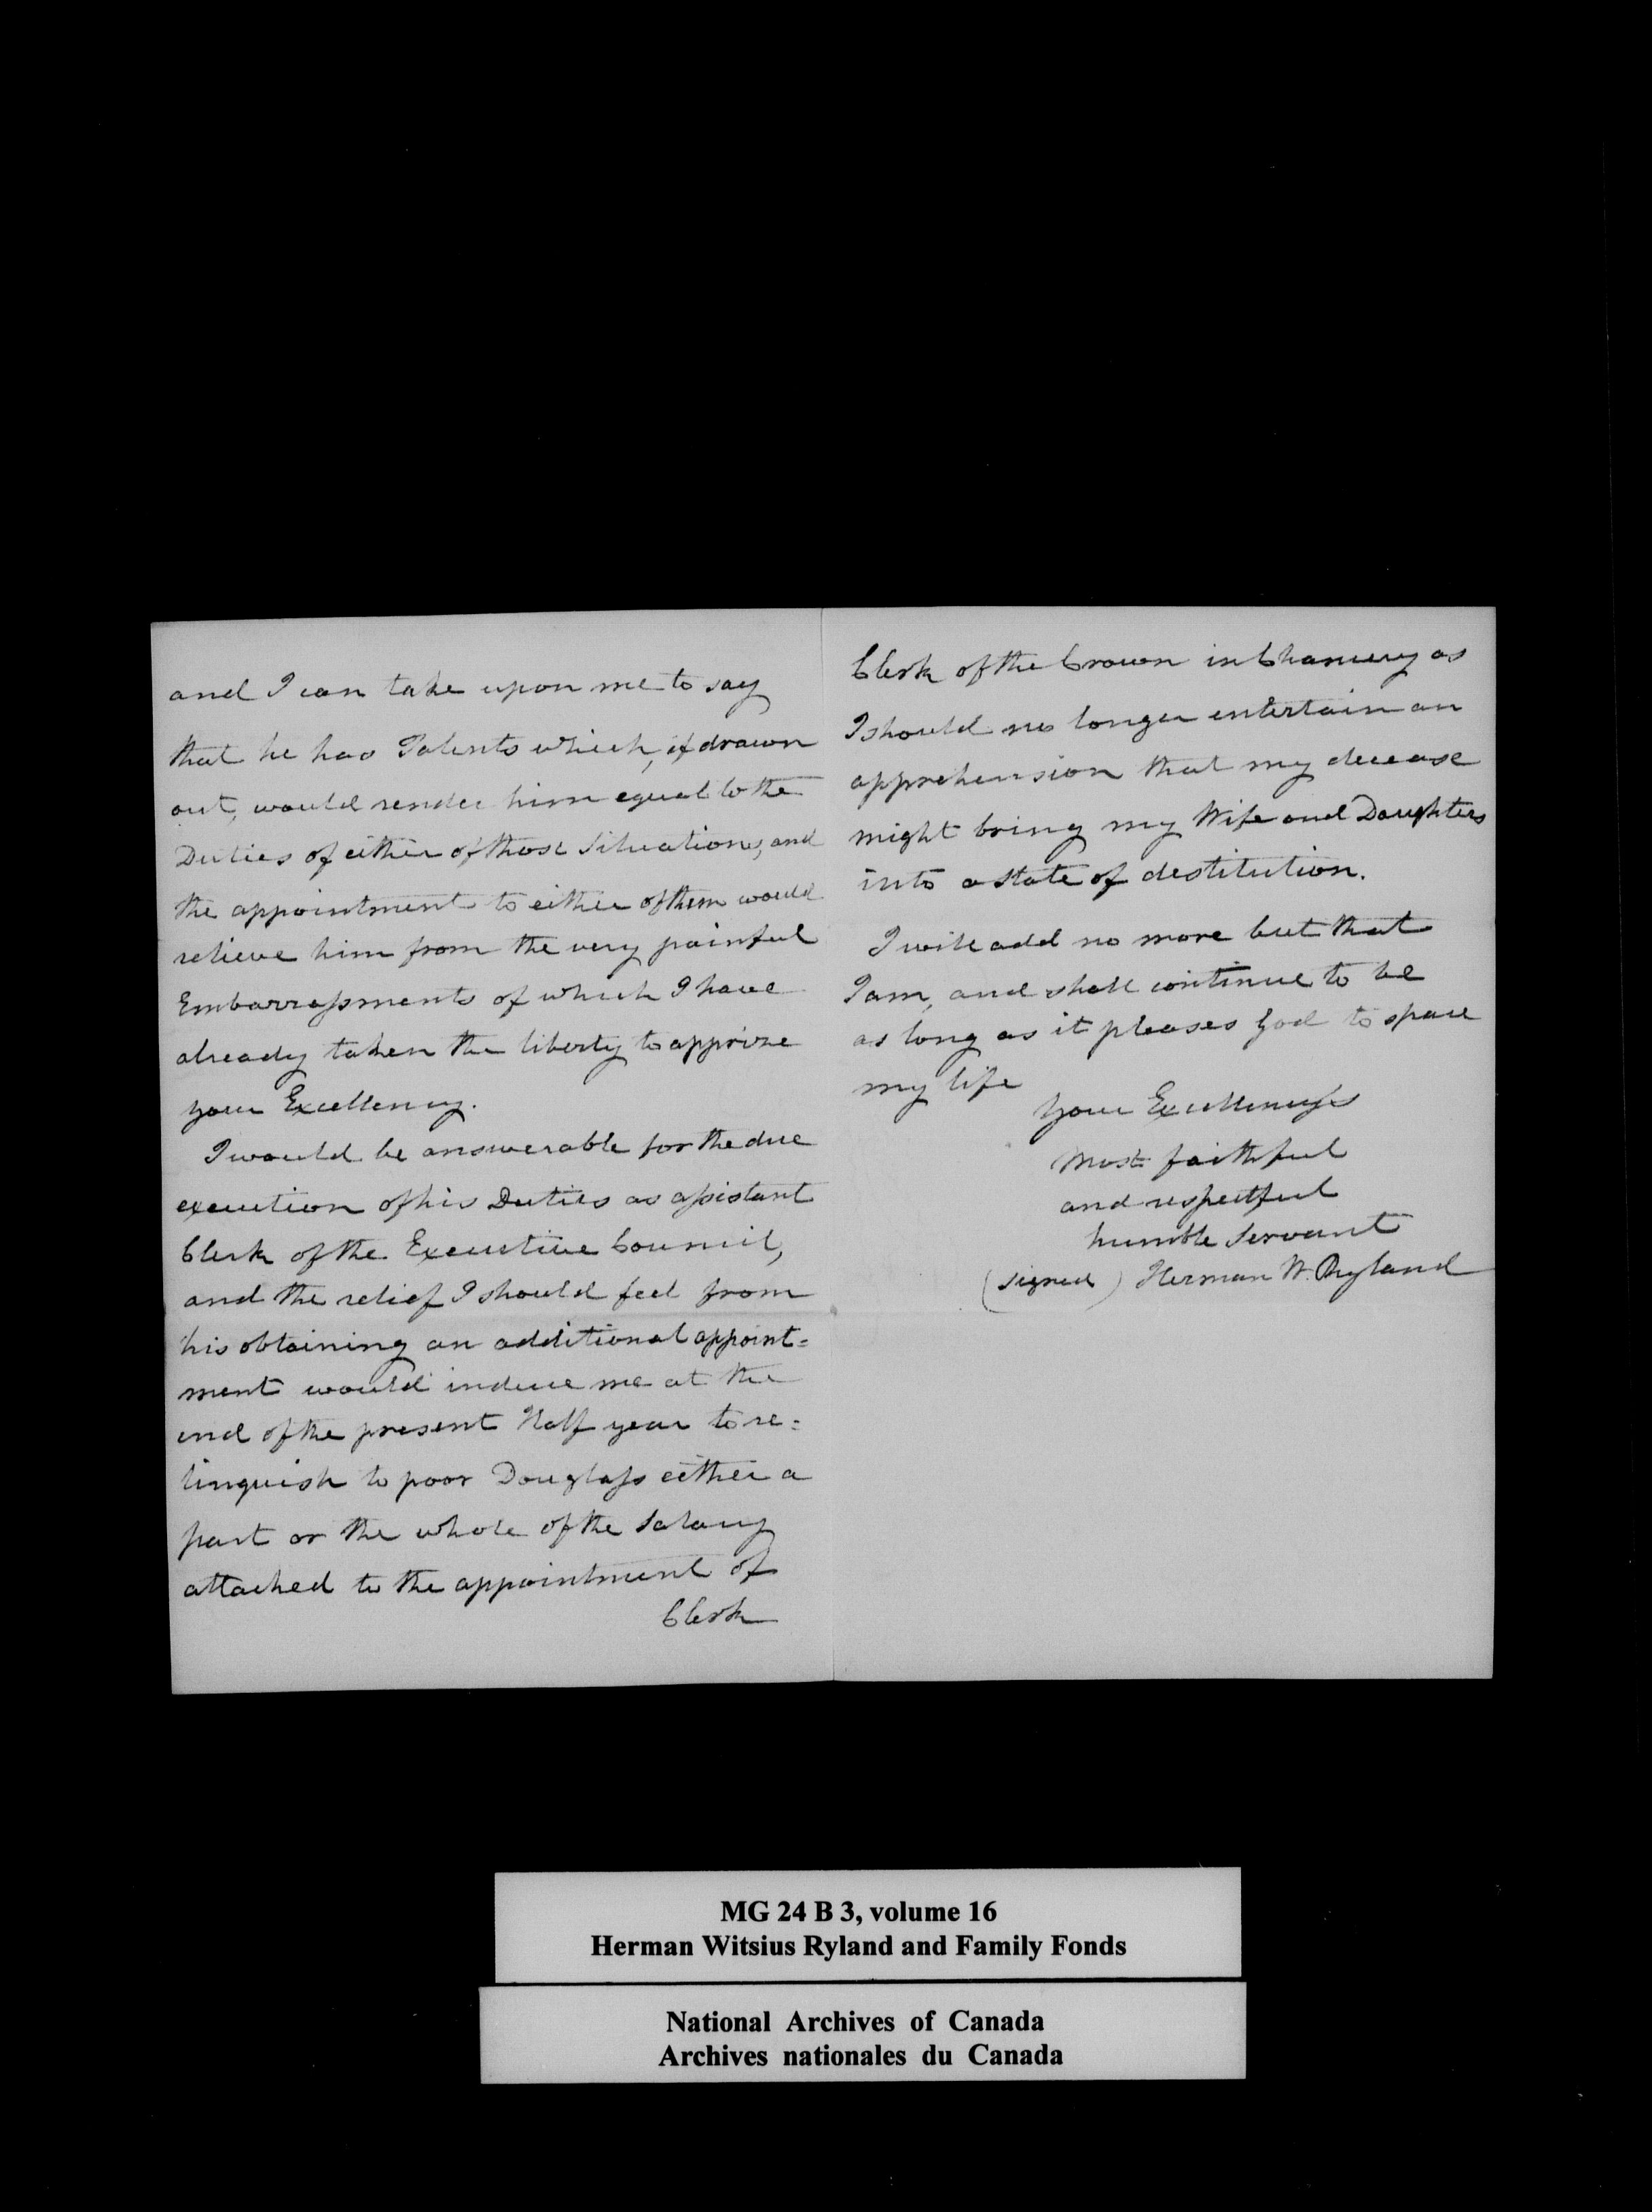 and I can take upon me to say
that he has Talents which, if drawn
out, would render him equal to the
Duties of either of those Situations, and
the appointment to either of them would
relieve him from the very painful
Embarrassments of which I have
already taken the liberty to apprize
your Excellency.
I would be answerable for the due
execution of his Duties as assistant
Clerk of the Executive Council,
and the relief I should feel from
his obtaining an additional appoint=
ment would induce me at the
end of the present Half year to re=
linquish to poor Douglass either a
part or the whole of the Salary
attached to the appointment of
Clerk
Clerk of the Crown in Chancery as
I should no longer entertain an
apprehension that my decease
might bring my Wife and Daughters
into a state of destitution.
I will add no more but that
I am, and shall continue to be
as long as it pleases God to spare
my life
Your Excellency's
most faithful
and respectful
humble Servant
(signed) Herman W. Ryland
MG 24 B 3, volume 16
Herman Witsius Ryland and Family Fonds
National Archives of Canada
Archives nationales du Canada